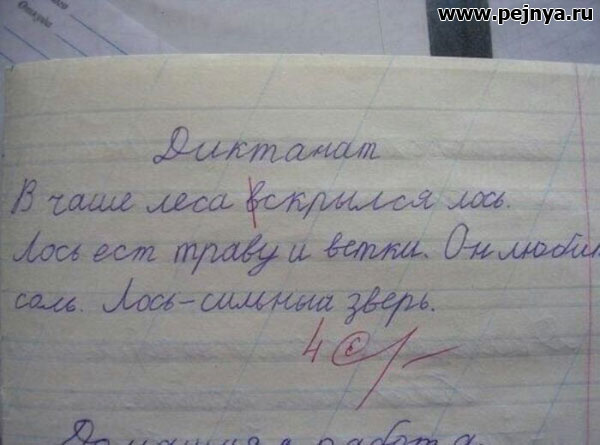 www.pejnya.ru
Диктанат
В чаше леса вскрылся лось.
Лось ест траву и ветки. Он любит
соль. Лось-сильный зверь.
4
Домашняя работа